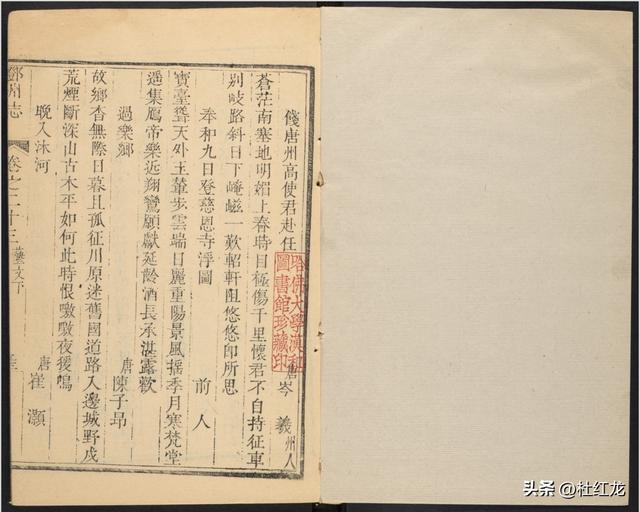 餞唐州高使君赴任 唐岑 羲州人
蒼茫南塞地明媚上春時目極傷千里懷君不自持征車
別岐路斜日下崦嵫一歎軺軒阻悠悠卽所思
奉和九日登慈恩寺浮圖 前人
寶臺聳天外玉輦步雲端日麗重陽景風摇季月寒梵堂
遥集鴈帝樂近翔鸞願獻延齡酒長承湛露歡
過樂鄉 唐陳子昂
故鄉杳無際日暮且孤征川原迷舊國道路入邊城野戍
荒煙斷深山古木平如何此時恨噭噭夜猿鳴
晚入河 唐崔灝
鄧州志 卷之二十三 藝文下
哈佛大學漢和
圖書館珍藏印
头条 @杜红龙